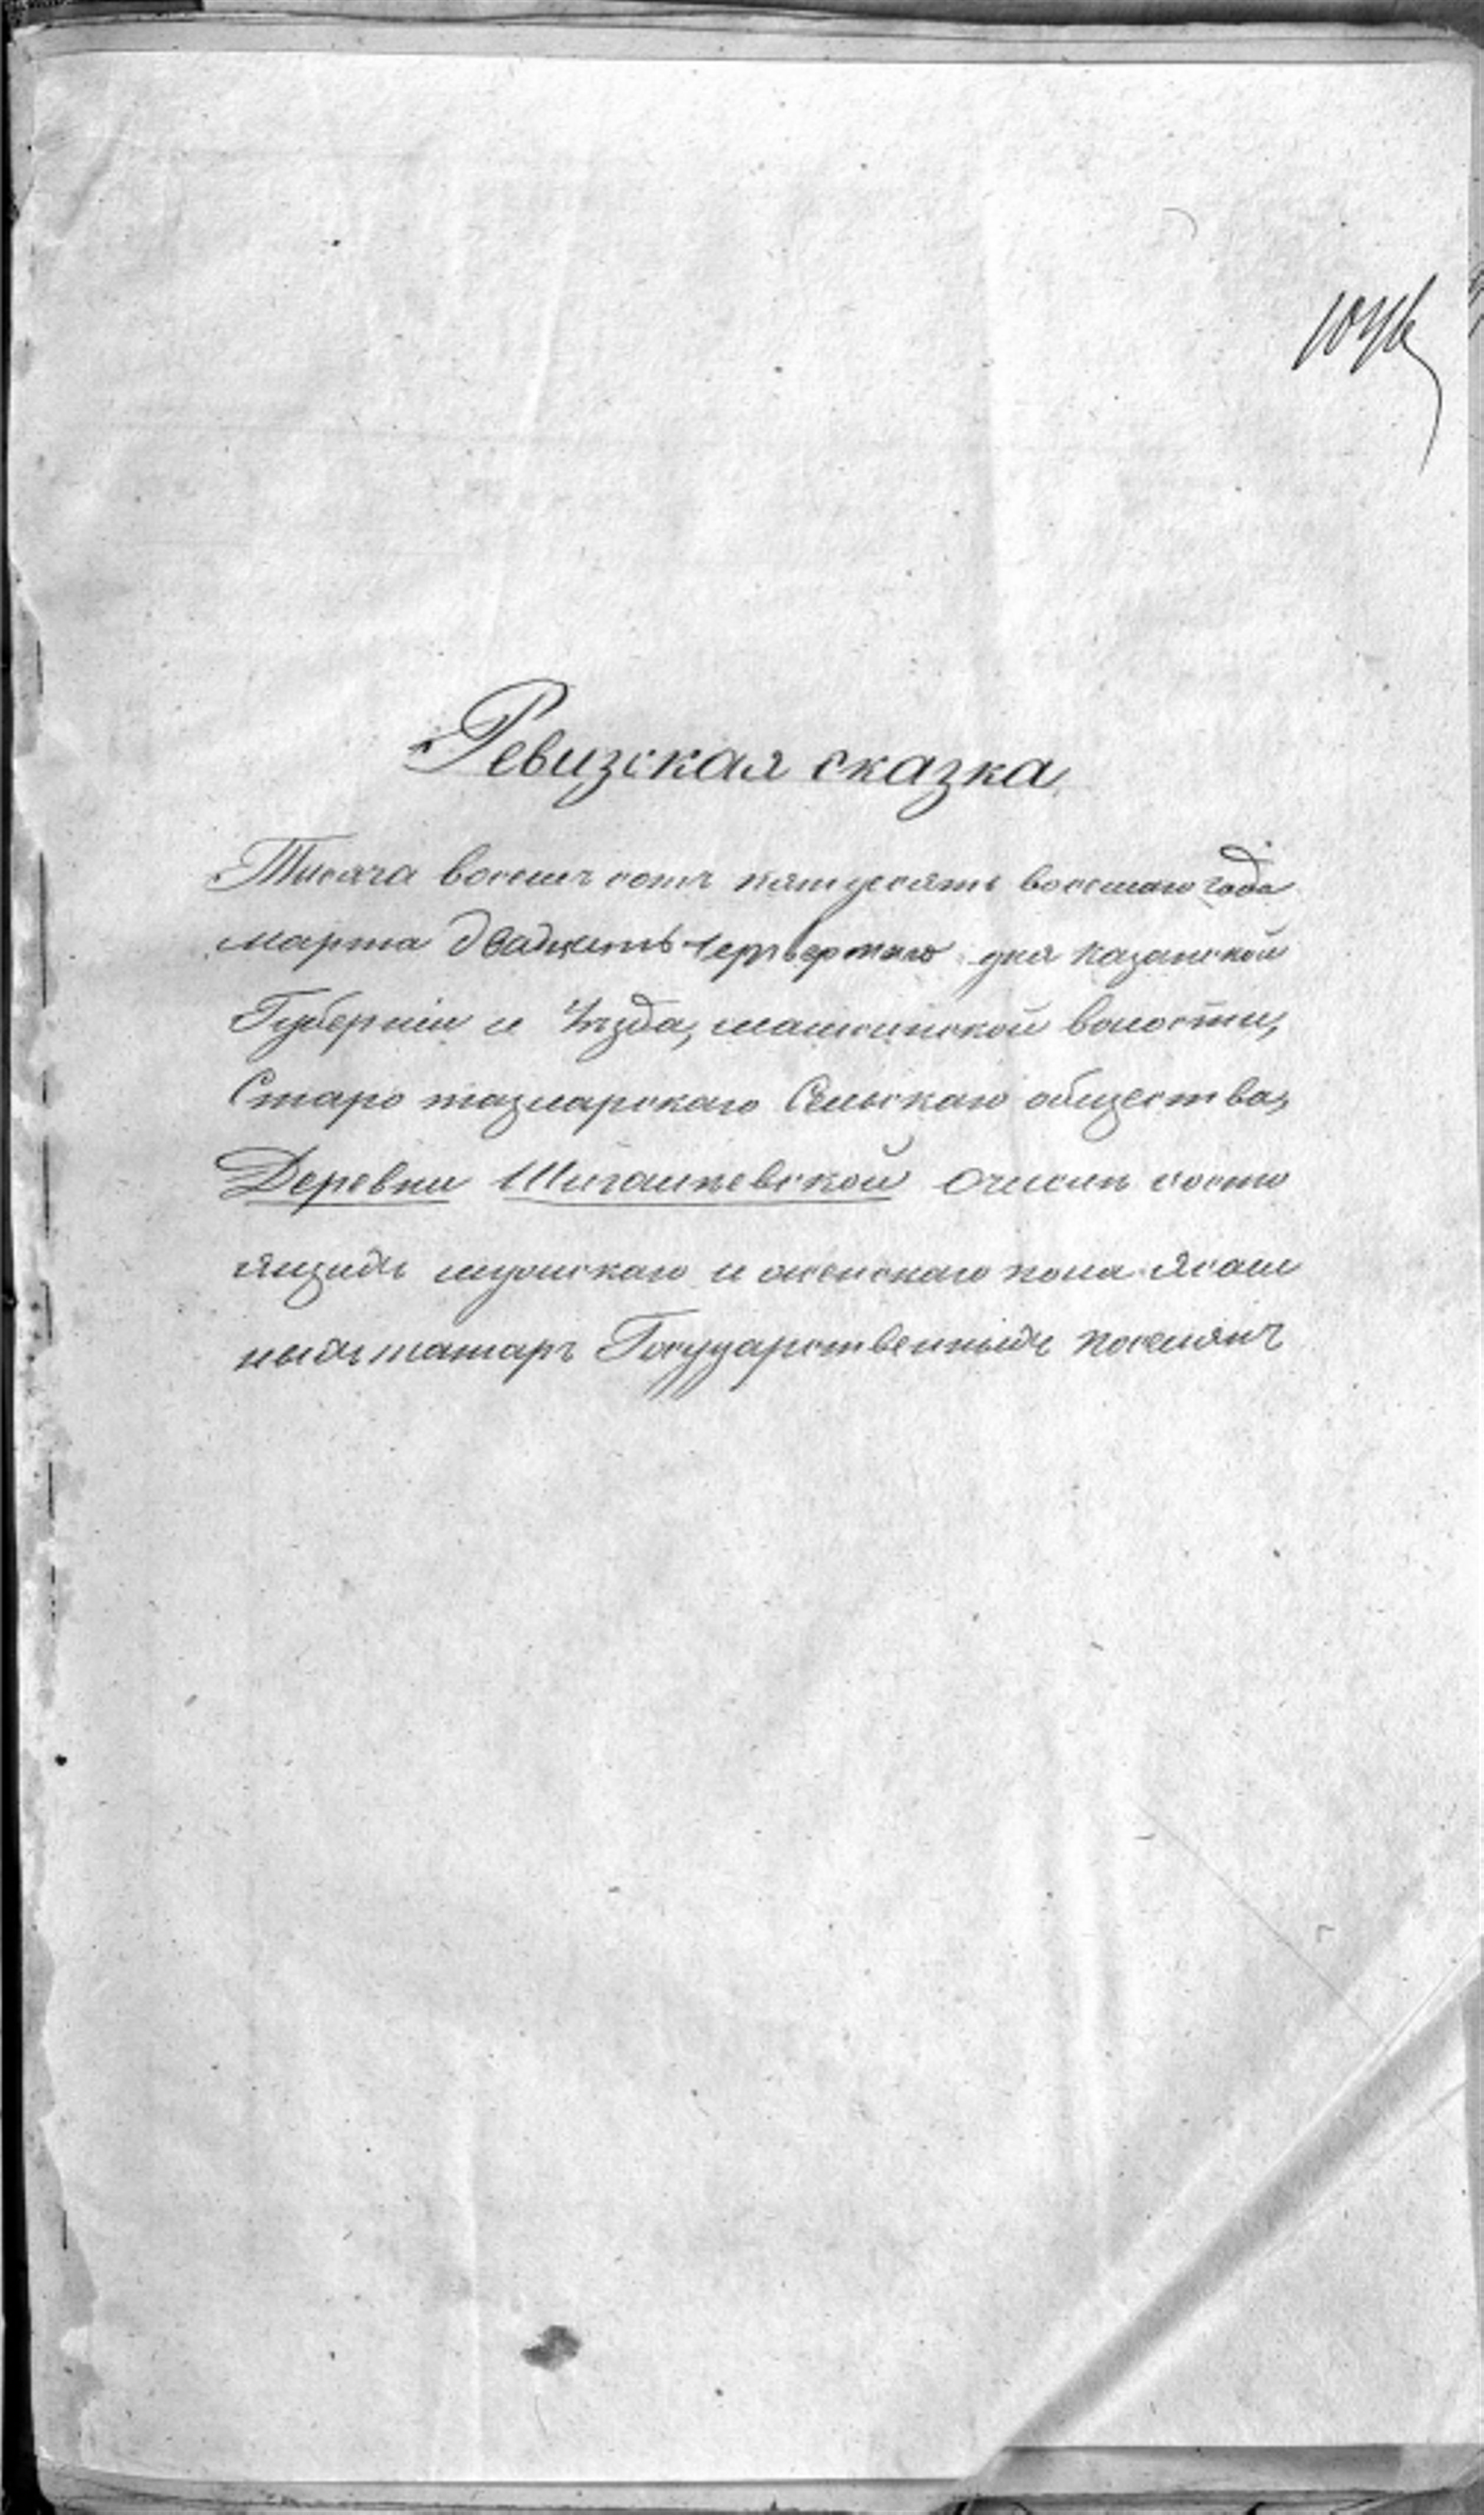 1046
Ревизская сказка
Тысяча восемь сотъ пятьдесятъ восьмаго года
марта двадцать четвертаго дня Казанской
Губерніи и Уѣзда, машинской волости,
Старо тазларскаго Сельскаго общества,
Деревни Шигалеевской Очисле состо
ящихъ мужскаго и женскаго пола Ясаш
ныхъ татаръ Государственныхъ поселянъ